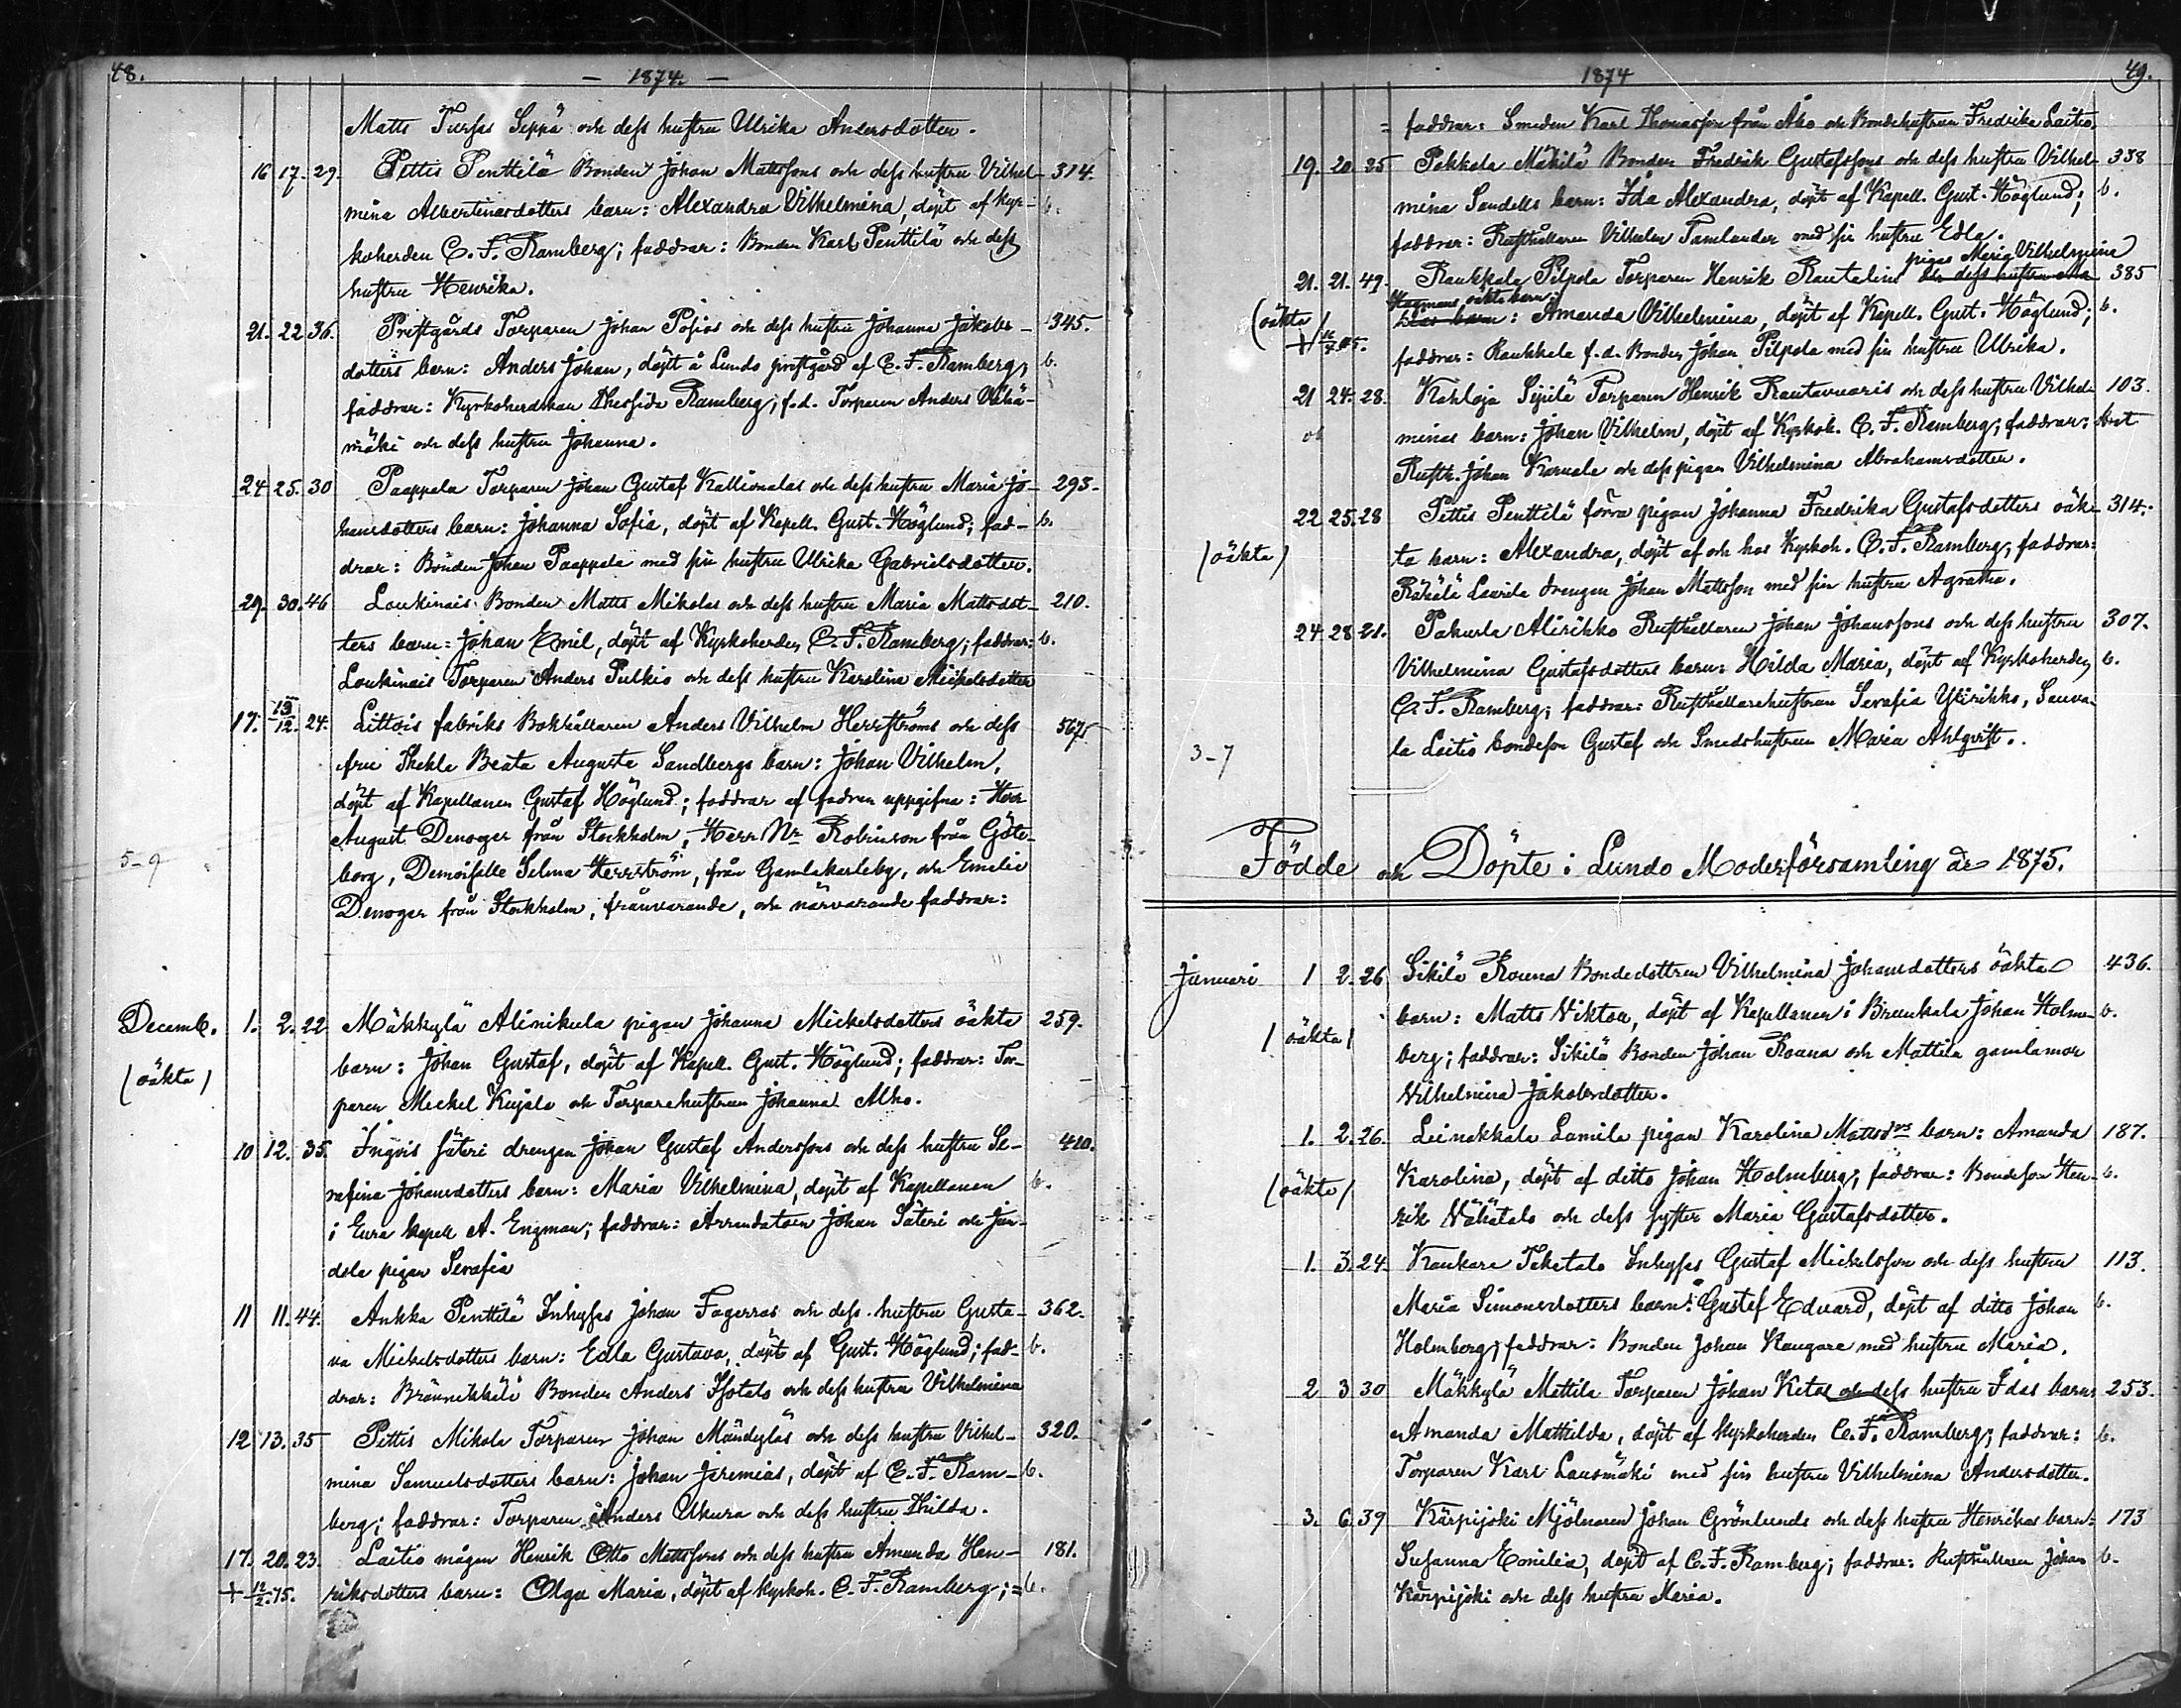 48.
- 1874. -
Matts Tursas Seppä och dess hustru Ulrika Andersdotter.
16 17. 29. Pettis Penttilä Bonden Johan Mattssons och dess hustru Vilhel- 314.
mina Albertinasdotters barn: Alexandra Vilhelmina, döpt af Kyr- b.
koherden C. F. Ramberg; faddrar: Bonden Karl Penttilä och dess
hustru Henrika.
21. 22 36. Prestgårds Torparen Johan Posios och dess hustru Johanna Jakobs- 345.
dotters barn: Anders Johan, döpt å Lundo prestgård af C. F. Ramberg, b.
faddrar: Kyrkoherdskan Ramberg; f.d. Torparen Anders Vähä-
mäki och dess hustru Johanna.
24 25. 30 Paappala Torparen Johan Gustaf Kallionalas och dess hustru Maria Jo- 293.
hansdotters barn: Johanna Sofia, döpt af Kapell. Gust. Höglund; fad- b.
drar: Bonden Johan Paappala med sin hustru Ulrika Gabrielsdotter.
29. 30. 46 Loukinais Bonden Matts Mikolas och dess hustru Maria Mattsdot- 210.
ters barn: Johan Emil, döpt af Kyrkoherden C. F. Ramberg; faddrar: b.
Loukinais Torparen Anders Pulkio och dess hustru Karolina Mickelsdotter
17. 13/12. 24. Littois fabriks Bokhållaren Anders Vilhelm Herrströms och dess 567.
fru Thekla Beata Augusta Sandbergs barn: Johan Vilhelm,
döpt af Kapellanen Gustaf Höglund; faddrar af fadren uppgifna: Herr
August Denoger från Stockholm, Herr Robinson från Göte-
5-9 borg, Demoiselle Selma Herrström, från Gamlakarleby, och Emilie
Denoger från Stockholm, frånvarande, och närvarande faddrar:
Decemb. 1. 2. 22 Mäkkylä Alinikula pigan Johanna Mickelsdotters oäkta 259.
(oäkta) barn: Johan Gustaf, döpt af Kapell. Gust. Höglund; faddrar: Tor-
paren Mickel Kujala och Torparehustrun Johanna Alho.
10 12. 35. Ingvis Säteri drengen Johan Gustaf Anderssons och dess hustru Se- 410.
rafina Johansdotters barn: Maria Vilhelmina, döpt af Kapellanen b.
i Eura kapell A. Engman; faddrar: Arrendatorn Johan Säteri och Jun-
dola pigan Serafia
11 11. 44. Ankka Penttilä Inhyses Johan Fagerroos och dess hustru Gusta- 362.
va Mickelsdotters barn: Edla Gustava, döpt af Gust. Höglund; fad- b.
drar: Bonden Anders Isotalo och dess hustru Vilhelmina
12 13. 35 Pettis Mikola Torparen Johan Mändyläs och dess hustru Vilhel- 320.
mina Samuelsdotters barn: Johan Jeremias, döpt af C. F. Ram- b.
berg; faddrar: Torparen Anders Ukura och dess hustru Thilda.
17. 20. 23. Laitio mågen Henrik Otto Mattssons och dess hustru Amanda Hen- 181.
+ 12/2. 75. riksdotters barn: Olga Maria, döpt af Kyrkoh. C. F. Ramberg; = b.
1874
49.
= faddrar: Smeden Karl Thomasson från Aho och Bondehustrun Fredrika Laitio.
19. 20. 35 Pakkola Mäkilä Bonden Fredrik Gustafssons och dess hustru Vilhel- 338
mina Sandells barn: Ida Alexandra, döpt af Kapell. Gust. Höglund; b.
faddrar: Rusthållaren Vilhelm Tamlander med sin hustru Edla.
pigas Maria Vilhelmina
21. 21. 49. Raukkala Pilpola Torparen Henrik Rautalins och dess hustru 385
Hagmans oäkta barn:
(oäkta) barn: Amanda Vilhelmina, döpt af Kapell. Gust. Höglund; b.
faddrar: Raukkala f.d. Bonden Johan Pilpola med sin hustru Ulrika.
21 24. 28. Kahloja Sipilä Torparen Henrik Rautavuoris och dess hustru Vilhel- 103.
minas barn: Johan Vilhelm, döpt af Kyrkoh. C. F. Ramberg; faddrar:
Rusth. Johan Karvala och dess pigan Vilhelmina Abrahamsdotter.
22 25. 28 Pettis Penttilä förra pigan Johanna Fredrika Gustafsdotters oäk- 314.
(oäkta) ta barn: Alexandra, döpt af och hos Kyrkoh. C. F. Ramberg; faddrar:
Rähälä Laurila drengen Johan Mattsson med sin hustru Agatha.
24 28 21. Pakurla Alirikko Rusthållaren Johan Johanssons och dess hustru 307.
Vilhelmina Gustafsdotters barn: Hilda Maria, döpt af Kyrkoherden b.
C. F. Ramberg; faddrar: Rusthållarehustrun Serafia Ylirikko, Sauva-
3-7 la Laitio bondeson Gustaf och Smedshustrun Maria Ahlqvist.
Födde och Döpte i Lundo Moderförsamling år 1875.
Januari 1 2. 26 Sikilä Rouna Bondedottren Vilhelmina Johansdotters oäkta 436.
(oäkta) barn: Matts Viktor, döpt af Kapellanen i Brunkala Johan Holm- b.
berg; faddrar: Sikilä Bonden Johan Rouna och Mattila gamlamor
Vilhelmina Jakobsdotter.
1. 2. 26. Leinakkala Lamila pigan Karolina Mattsdrs barn: Amanda 187.
(oäkta) Karolina, döpt af ditto Johan Holmberg; faddrar: Bondeson Hen- b.
rik Vähätalo och dess syster Maria Gustafsdotter.
1. 3. 24. Kaukare Taketalo Inhyses Gustaf Mickelsson och dess hustru 113.
Maria Simonsdotters barn: Gustaf Edvard, döpt af ditto Johan b.
Holmberg; faddrar: Bonden Johan Kaugare med hustru Maria.
2 3 30 Mäkkylä Mattila Torparen Johan Ketos och dess hustru Idas barn 253.
Amanda Mattilda, döpt af Kyrkoherden C. F. Ramberg; faddrar: b.
Torparen Karl Lausmäki med sin hustru Vilhelmina Andersdotter.
3. 6. 39 Kärpijoki Mjölnaren Johan Grönlunds och dess hustru Henrikas barn: 173
Susanna Emilia, döpt af C. F. Ramberg; faddrar: Rusthållaren Johan b.
Kärpijoki och dess hustru Maria.